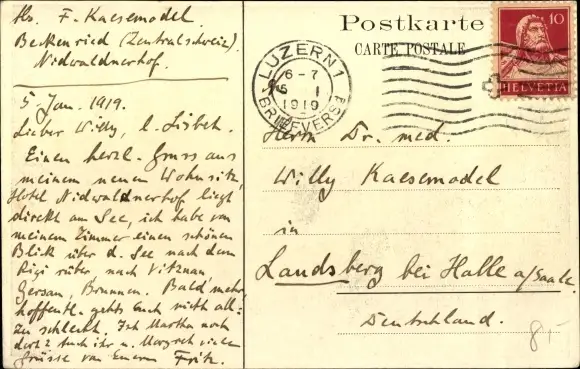 Abs. F. Kaesemodel.
Beckenried (Zentralschweiz).
Nidwaldnerhof.
5. Jan. 1919.
Lieber Willy, l. Lisbeth.
Einen herzl. Gruss aus
meinem neuen Wohnsitz,
Hotel Nidwaldnerhof liegt
direkt am See, ich habe von
meinem Zimmer einen schönen
Blick über d. See nach dem
Rigi rüber, nach Vitznau,
Gersau, Brunnen. Bald mehr,
hoffentl. gehts Euch nicht all-
zu schlecht. Ist Martha noch
dort? Euch ihr u. Margret viele
Grüsse von Eurem Fritz.
Postkarte
CARTE POSTALE
LUZERN 1
6-7
5 I
1919
BRIEFVERSD
10
HELVETIA
Herrn Dr. med.
Willy Kaesemodel
in
Landsberg bei Halle a/Saale.
Deutschland.
8,-